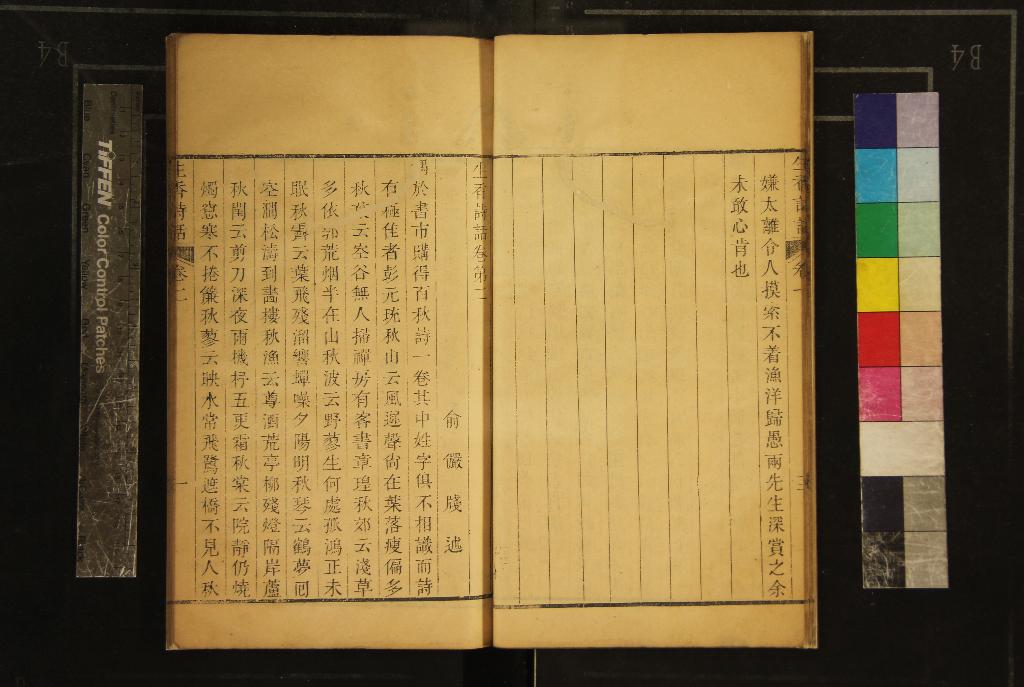 生香詩話 卷一
嫌太離令人摸索不着漁洋歸愚兩先生深賞之余
未敢心肯也
生香詩話卷第二
俞儼牋述
於書市購得百秋詩一卷其中姓字俱不相識而詩
有極佳者彭元珫秋山云風遲聲尚在葉落瘦偏多
秋云空谷無人掃禪房有客書章瑝秋郊云淺草
多依郭荒烟半在山秋波云野蓼生何處孤鴻正未
眠秋云葉飛殘溜響蟬噪夕陽明秋琴云鶴夢回
空澗松濤到畫樓秋漁云尊酒荒亭柳殘燈隔岸蘆
秋閨云剪刀深夜雨機杼五更霜秋棠云院靜仍燒
燭寒不捲簾秋蓼云映水常飛鷺遮橋不見人秋
生香詩話 卷二 一
TIFFEN Color Control Patches
Blue Cyan Green Yellow Red
B4
B4